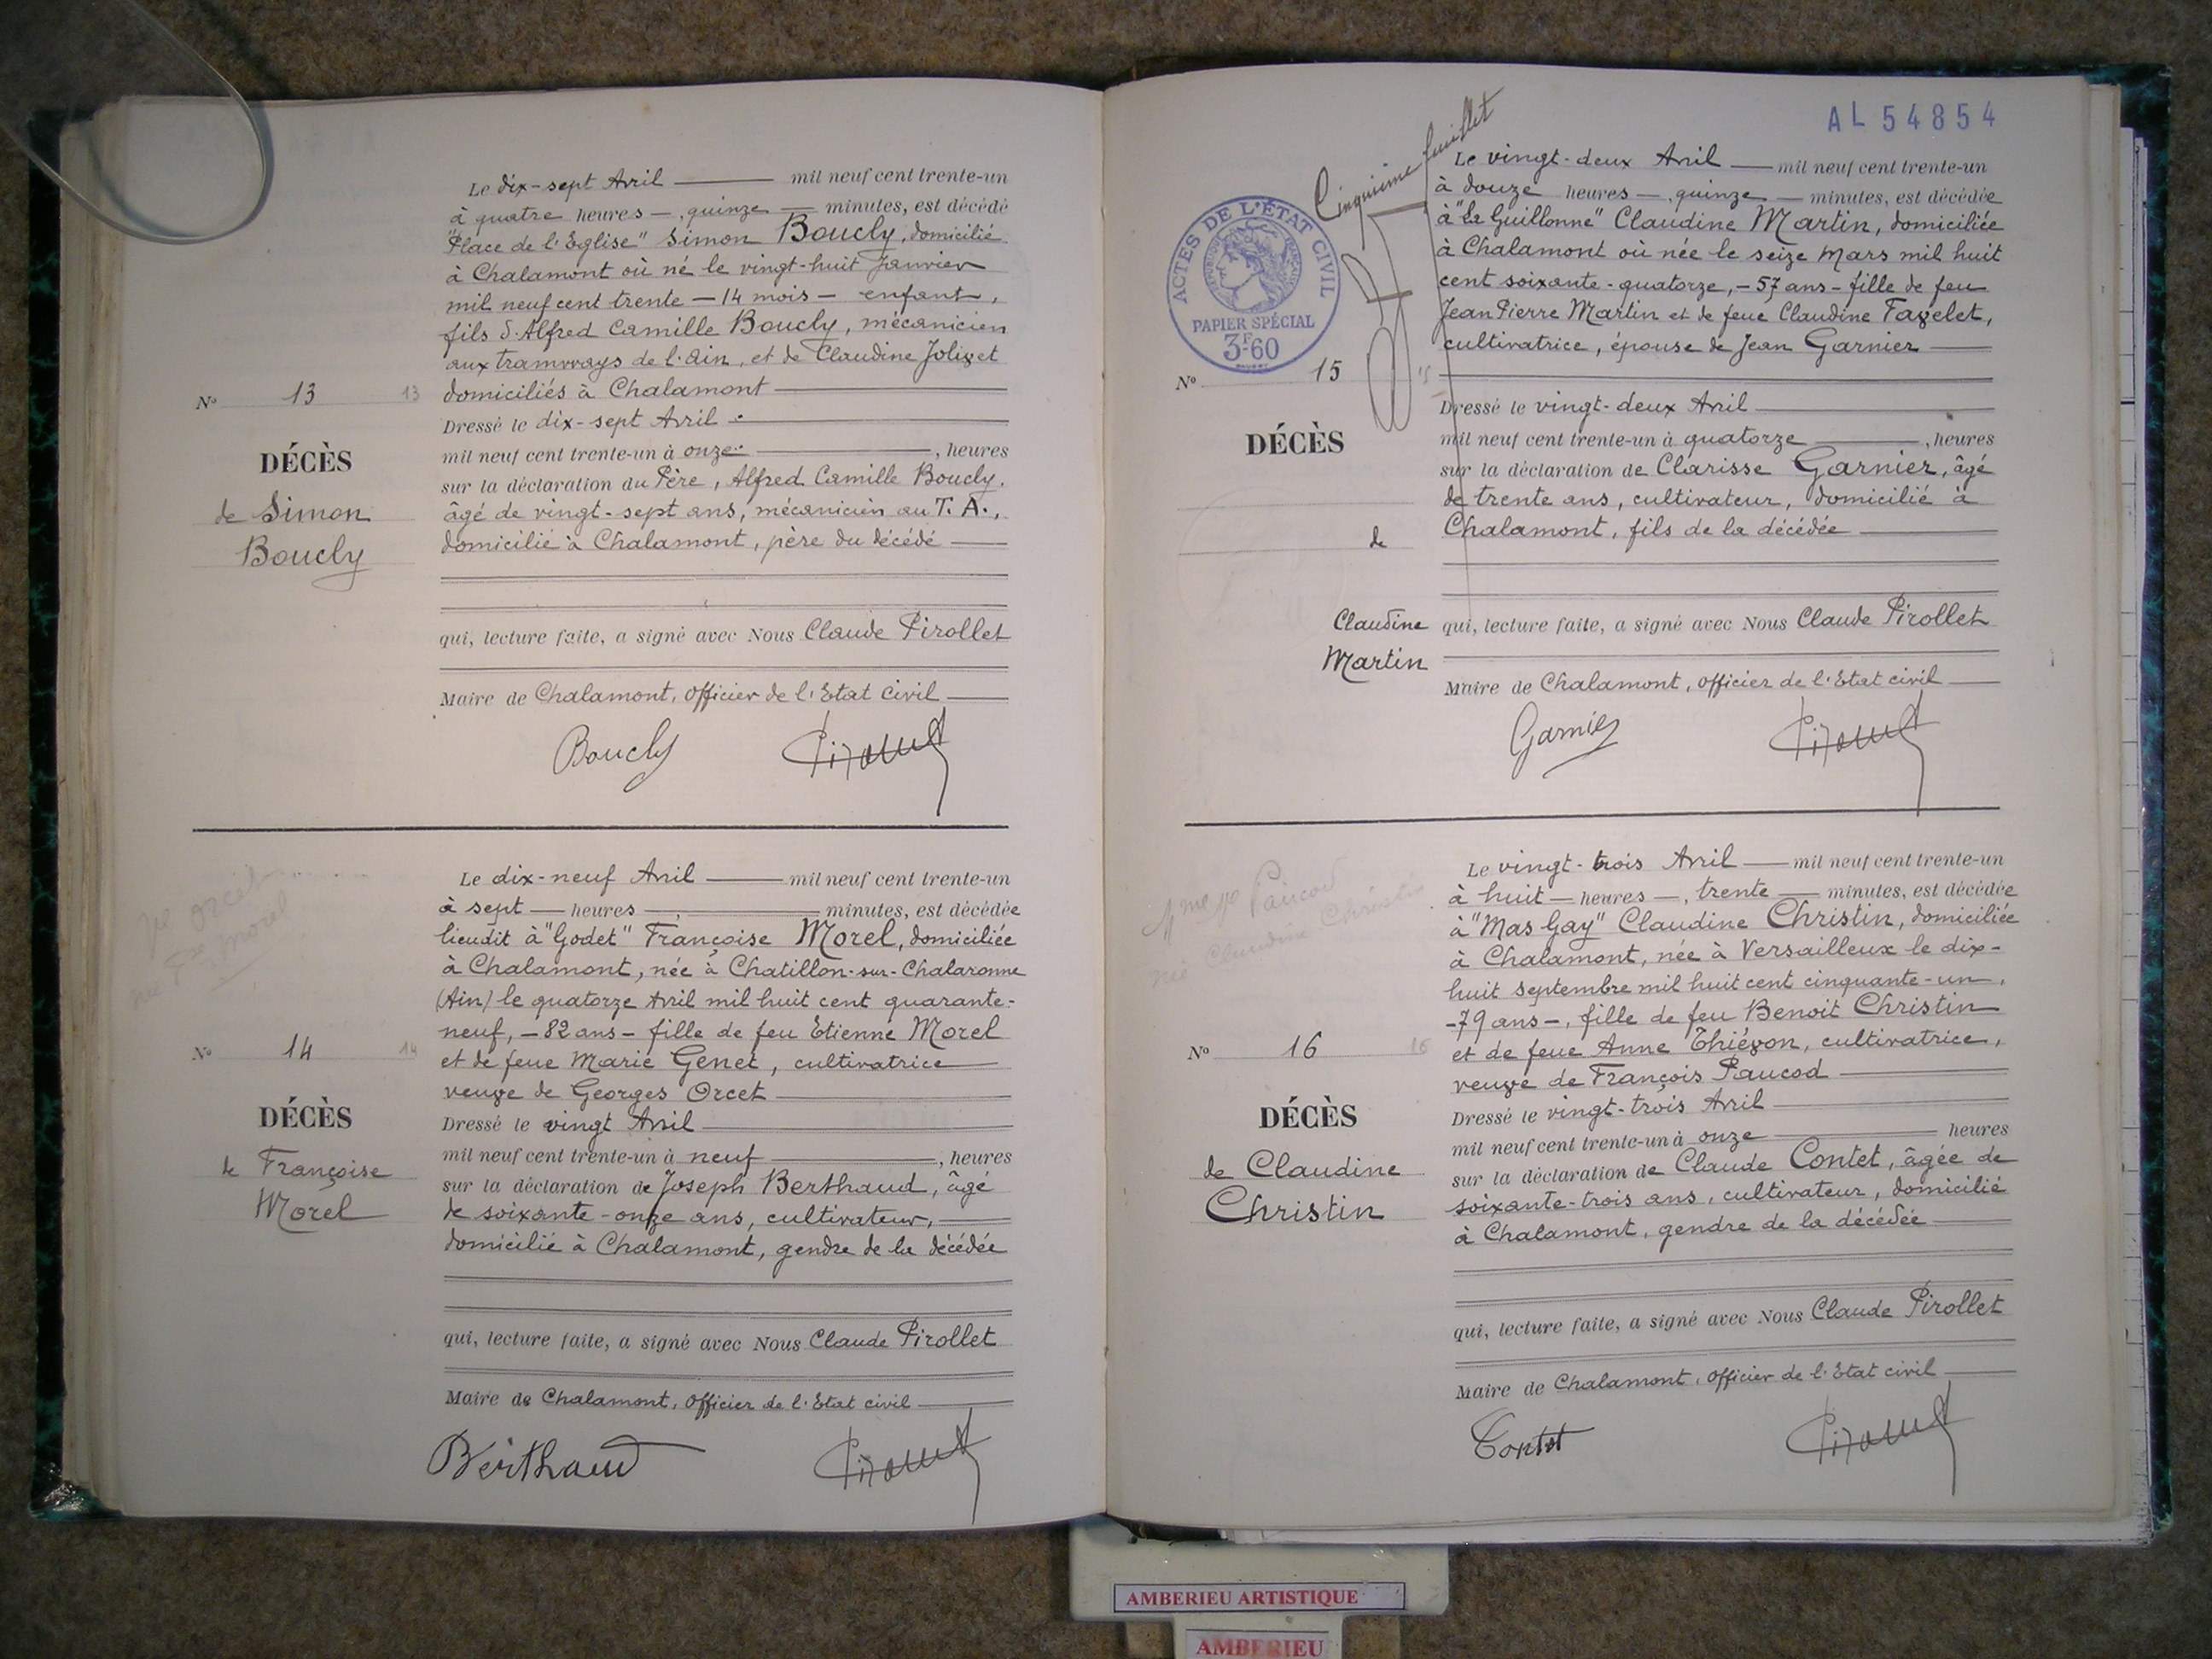 Le dix-sept Avril mil neuf cent trente-un
à quatre heures, quinze minutes, est décédé
"Place de l'Eglise" Simon Boucly, domicilié
à Chalamont où né le vingt-huit Janvier
mil neuf cent trente - 14 mois - enfant,
fils d'Alfred Camille Boucly, mécanicien
aux tramways de l'Ain, et de Claudine Joliget
domiciliés à Chalamont
Dressé le dix-sept Avril
mil neuf cent trente-un à onze, heures
sur la déclaration du Père, Alfred Camille Boucly,
âgé de vingt-sept ans, mécanicien au T. A.,
domicilié à Chalamont, père du décédé
qui, lecture faite, a signé avec Nous Claude Pirollet
Maire de Chalamont, Officier de l'Etat civil
Boucly
N° 13
13
DÉCÈS
de Simon
Boucly
Le dix-neuf Avril mil neuf cent trente-un
à sept heures, minutes, est décédée
lieudit à "Godet" Françoise Morel, domiciliée
à Chalamont, née à Chatillon-sur-Chalaronne
(Ain) le quatorze Avril mil huit cent quarante-
neuf, - 82 ans - fille de feu Etienne Morel
et de feue Marie Genet, cultivatrice
veuve de Georges Orcet
Dressé le vingt Avril
mil neuf cent trente-un à neuf, heures
sur la déclaration de Joseph Berthaud, âgé
de soixante-onze ans, cultivateur,
domicilié à Chalamont, gendre de la décédée
qui, lecture faite, a signé avec Nous Claude Pirollet
Maire de Chalamont, Officier de l'Etat civil
Berthaud
N° 14
14
DÉCÈS
de Françoise
Morel
AL 54854
Cinquième feuillet
ACTES DE L'ÉTAT CIVIL
PAPIER SPÉCIAL
3F60
Le vingt-deux Avril mil neuf cent trente-un
à douze heures, quinze minutes, est décédée
à "la Guillonne" Claudine Martin, domiciliée
à Chalamont où née le seize Mars mil huit
cent soixante-quatorze, - 57 ans - fille de feu
Jean Pierre Martin et de feue Claudine Fagelet,
cultivatrice, épouse de Jean Garnier
Dressé le vingt-deux Avril
mil neuf cent trente-un à quatorze, heures
sur la déclaration de Clarisse Garnier, âgé
de trente ans, cultivateur, domicilié à
Chalamont, fils de la décédée
qui, lecture faite, a signé avec Nous Claude Pirollet
Maire de Chalamont, Officier de l'Etat civil
Garnier
N° 15
15
DÉCÈS
de
Claudine
Martin
Le vingt-trois Avril mil neuf cent trente-un
à huit heures, trente minutes, est décédée
à "Mas Gay" Claudine Christin, domiciliée
à Chalamont, née à Versailleux le dix-
huit Septembre mil huit cent cinquante-un,
- 79 ans -, fille de feu Benoit Christin
et de feue Anne Thiévon, cultivatrice,
veuve de François Paucod
Dressé le vingt-trois Avril
mil neuf cent trente-un à onze heures
sur la déclaration de Claude Contet, âgée de
soixante-trois ans, cultivateur, domicilié
à Chalamont, gendre de la décédée
qui, lecture faite, a signé avec Nous Claude Pirollet
Maire de Chalamont, Officier de l'Etat civil
Contet
N° 16
16
DÉCÈS
de Claudine
Christin
AMBERIEU ARTISTIQUE
AMBERIEU